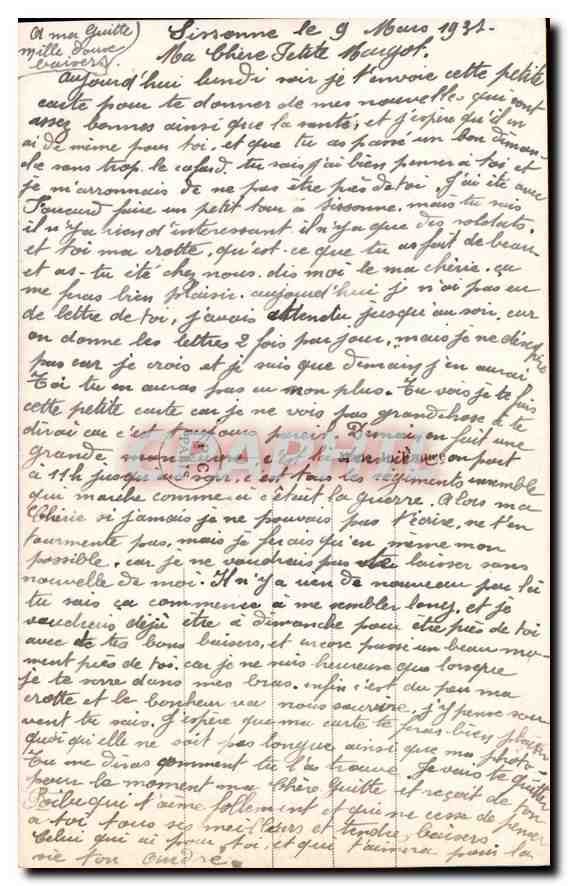 A ma Guitte
mille doux
baisers
Sissonne le 9 Mars 1931.
Ma Chère Petite Margot.
Aujourd'hui lundi soir je t'envoie cette petite
carte pour te donner de mes nouvelles qui sont
assez bonnes ainsi que la santé, et j'espère qu'il en
ai de même pour toi, et que tu as passé un bon diman-
che sans trop le cafard. tu sais j'ai bien penser à toi et
je m'arronnais de ne pas être près de toi. J'ai été avec
faire un petit tour à Sissonne. mais tu sais
il n'y a rien d'intéressant il n'y a que des soldats.
et toi ma crotte, qu'est-ce que tu as fait de beau
et as-tu été chez nous. dis moi le ma chérie. ça
me feras bien plaisir. aujourd'hui je n'ai pas eu
de lettre de toi, j'avais attendu jusqu'au soir, car
on donne les lettres 2 fois par jour, mais je ne désespère
pas car je crois et je sais que demain j'en aurai
Toi tu en auras pas eu non plus. Tu vois je te fais
cette petite carte car je ne vois pas grand chose à te
dirai car c'est toujours pareil. Demain on fait une
grande manoeuvre on part
à 11h jusqu'au soir, c'est tous les régiments ensemble
qui marche comme ci c'était la guerre. Alors ma
Chérie si jamais je ne pouvais pas t'écrire, ne t'en
tourmente pas, mais je ferais qu'en même mon
possible, car je ne voudrais pas te laisser sans
nouvelle de moi. Il n'y a rien de nouveau par là
tu sais ça commence à me sembler long, et je
voudrais déjà être à dimanche pour être près de toi
avec de tes bons baisers, et encore passer un beau mo-
ment près de toi. car je ne suis heureuse que lorsque
je te serre dans mes bras. enfin c'est du peu ma
crotte et le bonheur va nous sourire, j'y pense sou-
vent tu sais. J'espère que ma carte te feras bien plaisir
quoi qu'elle ne soit pas longue ainsi que ma photo.
Tu me diras comment tu l'as trouvé. Je vais te quitter
pour le moment ma Chère Guitte et reçoit de ton
Poilu qui t'aime follement et qui ne cesse de penser
à toi tous ses meilleurs et tendre baisers
Celui qui ai pour toi, et qui t'aimera pour la
vie ton André.
CPAPHIL